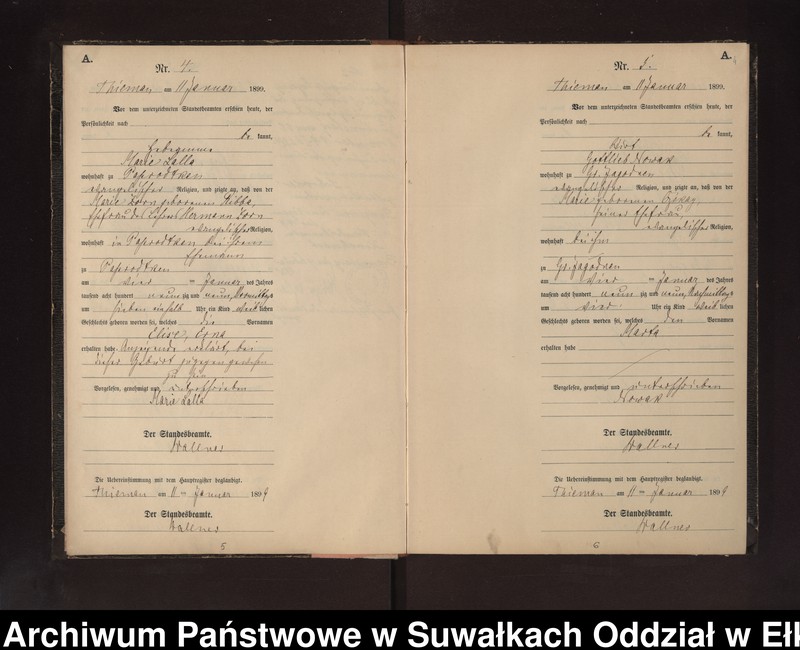 A.
Nr. 4.
Thiemau am 11 Januar 1899.
Vor dem unterzeichneten Standesbeamten erschien heute, der
Persönlichkeit nach
be kannt,
Hebeamme
Marie Lalla
wohnhaft zu Paprodtken
evangelischer Religion, und zeigte an, daß von der
Marie Zorn geborenen
Ehefrau des Hermann Zorn
evangelischer Religion,
wohnhaft in Paprodtken bei ihrem
Ehemanne
zu Paprodtken
am Januar des Jahres
tausend acht hundert neun zig und neun, Vormittags
um sieben einhalb Uhr ein Kind weib lichen
Geschlechts geboren worden sei, welches die Vornamen
Elise,
erhalten habe. Anzeigende erklärt, bei
dieser Geburt zugegen gewesen
zu sein
Vorgelesen, genehmigt und unterschrieben
Marie Lalla
Der Standesbeamte.
Wallner
Die Uebereinstimmung mit dem Hauptregister beglaubigt.
Thiemau am 11 ten Januar 1899
Der Standesbeamte.
Wallner
5
A.
Nr. 5.
Thiemau am 11 Januar 1899.
Vor dem unterzeichneten Standesbeamten erschien heute, der
Persönlichkeit nach
be kannt,
Wirt
Gottlieb Nowak
wohnhaft zu Gr. Jagodnen
evangelischer Religion, und zeigte an, daß von der
Marie geborenen
seiner Ehefrau,
evangelischer Religion,
wohnhaft bei ihm
zu Gr. Jagodnen
am Januar des Jahres
tausend acht hundert neun zig und neun, Nachmittags
um vier Uhr ein Kind weib lichen
Geschlechts geboren worden sei, welches den Vornamen
Marta
erhalten habe
Vorgelesen, genehmigt und unterschrieben
Nowak
Der Standesbeamte.
Wallner
Die Uebereinstimmung mit dem Hauptregister beglaubigt.
Thiemau am 11 ten Januar 1899
Der Standesbeamte.
Wallner
6
Archiwum Państwowe w Suwałkach Oddział w Ełk